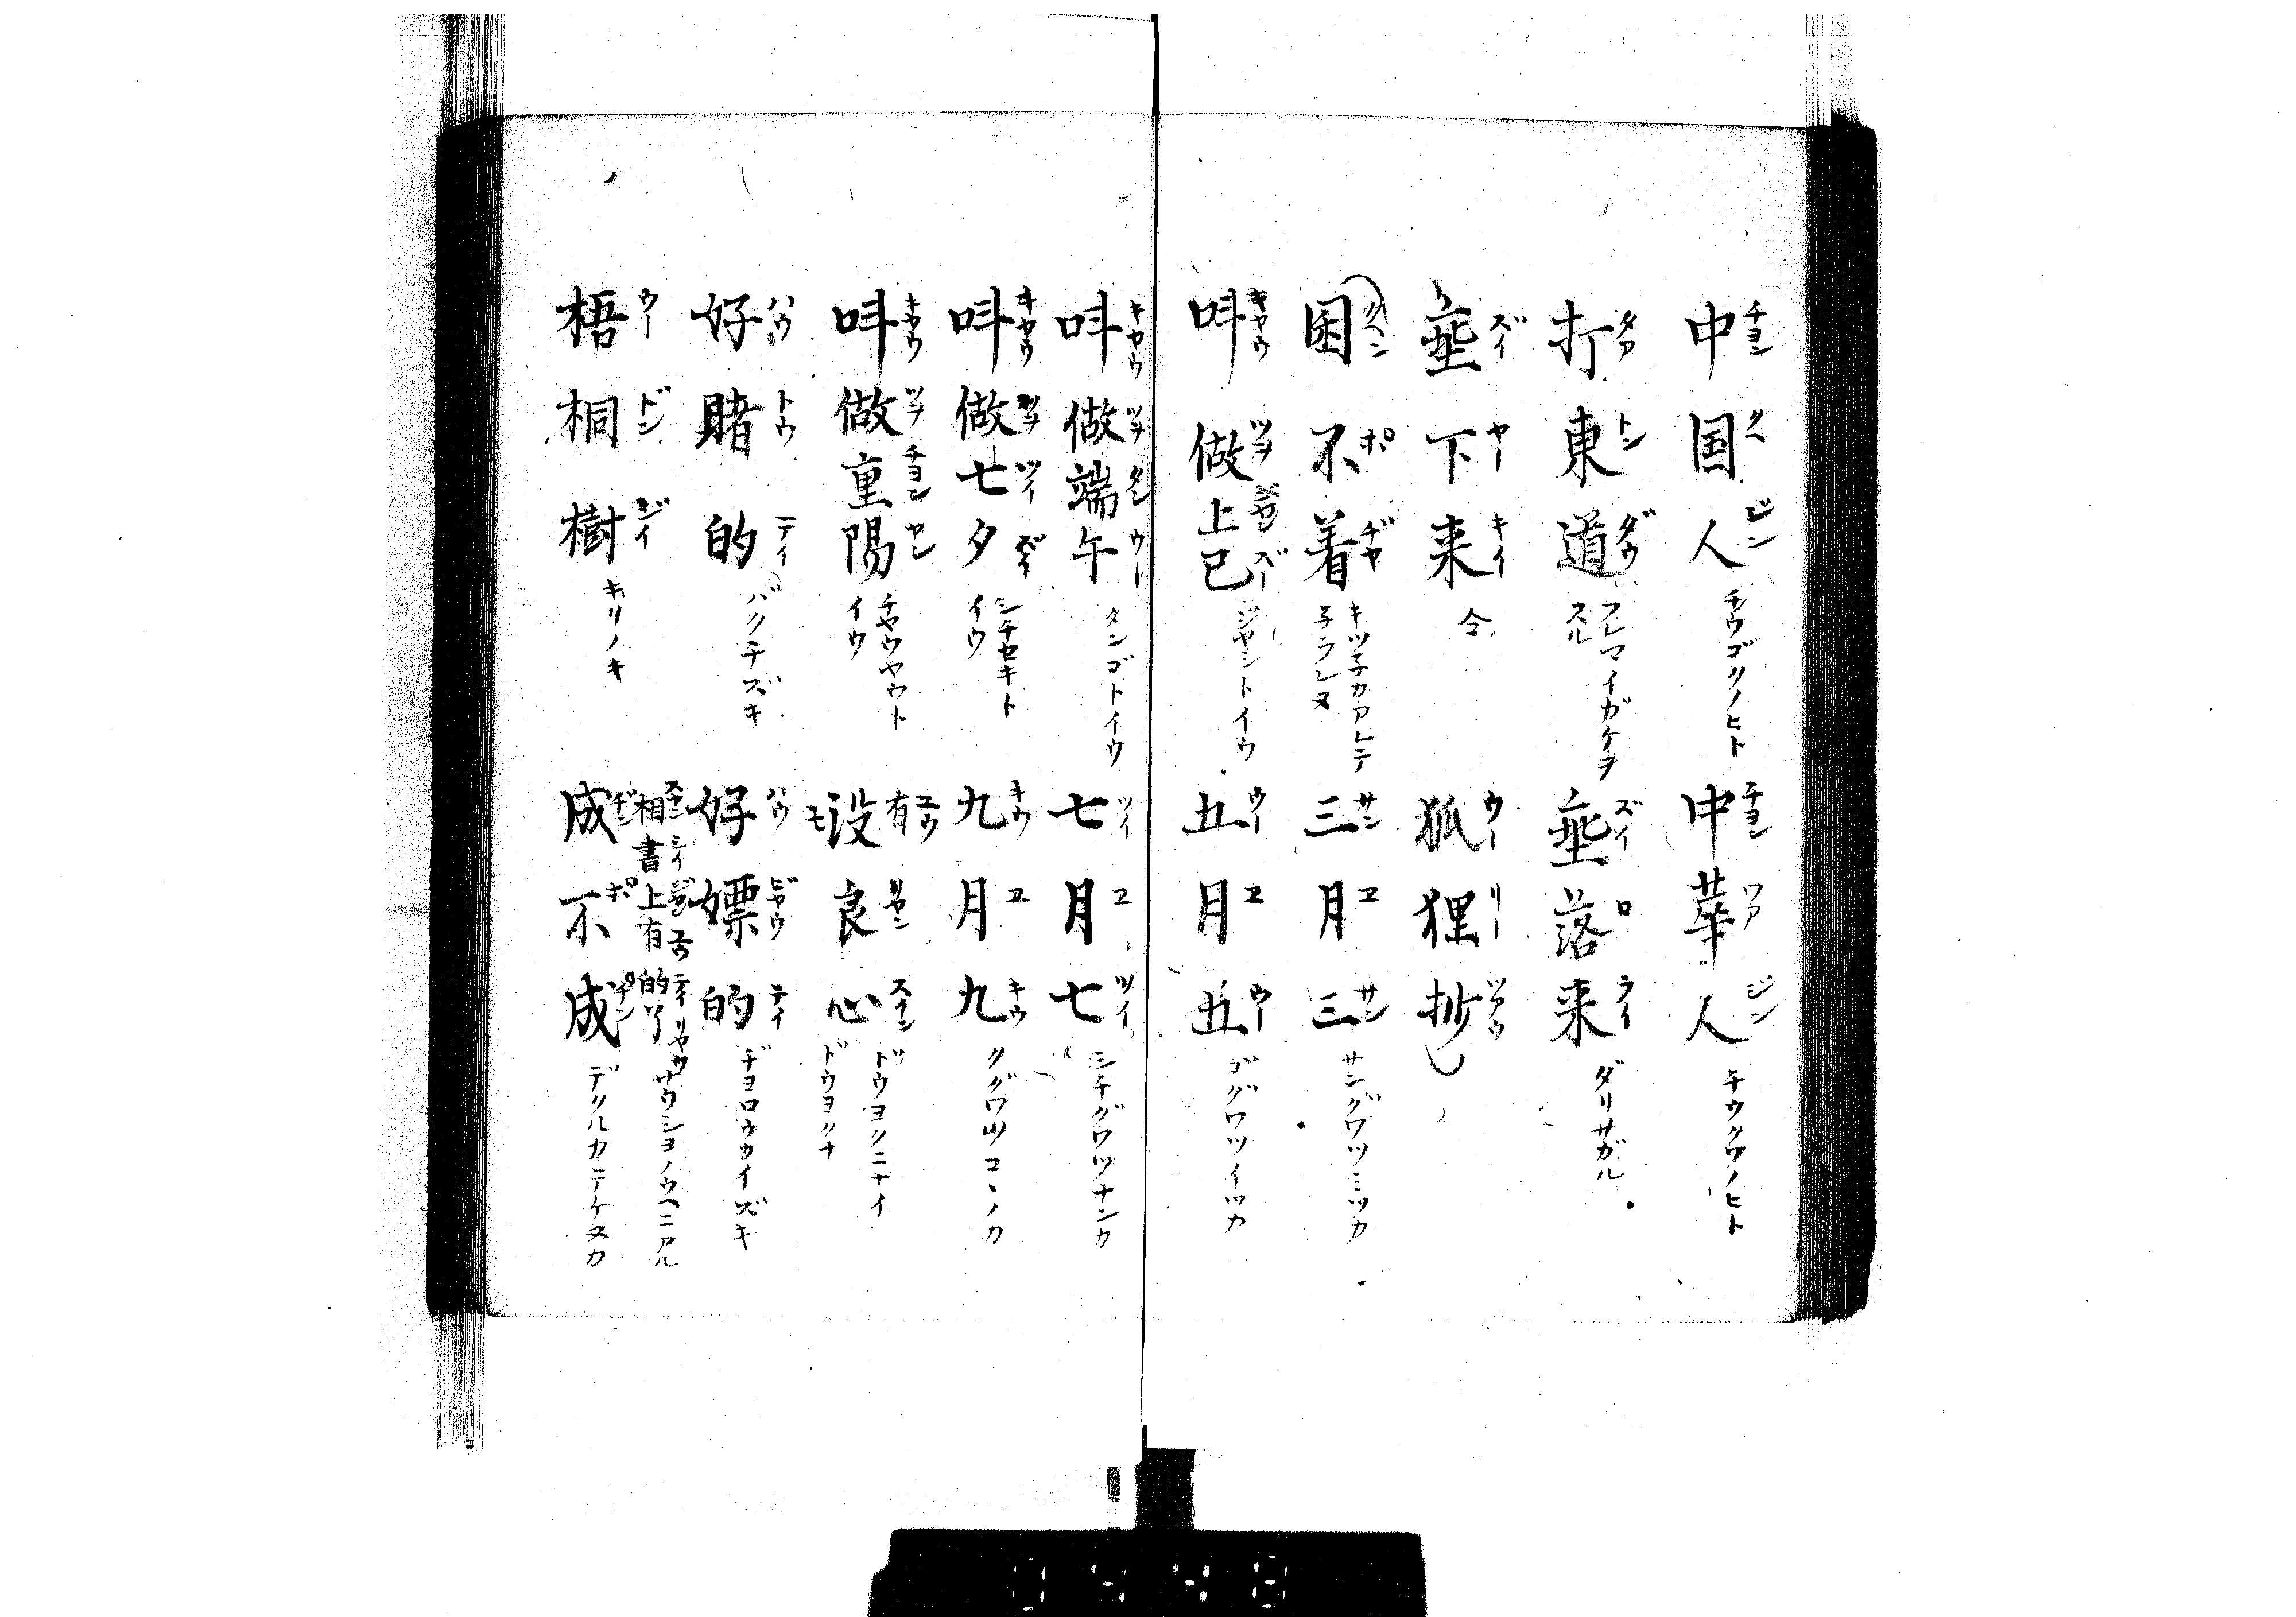 中国人 チウゴクノヒト
チヨン クヘ ジン
中華人 チウクワノヒト
チヨン ワア ジン
打東道 フルマイガケヲスル
タア トン ダウ
埀落来 ダリサガル
ズイ ロ ライ
埀下来 仝
ズイ ヤー キイ
狐狸抄
ウー リー ツアウ
困不着 キツ子カアレテ子ラレヌ
クヘン ポ ヂヤ
三月三 サングワツミツカ
サン ヱ サン
叫做上巳 ジヤシトイウ
キヤウ ツヲ ジヤン ズー
五月五 ゴグワツイツカ
ウー ヱ ウー
叫做端午 タンゴトイウ
キヤウ ツヲ タン ウー
七月七 シチグワツナンカ
ツイ ヱ ツイ
叫做七夕 シチセキトイウ
キヤウ ツヲ ツイ ヅイ
九月九 クグワツコヽノカ
キウ ヱ キウ
叫做重陽 チヤウヤウトイウ
キヤウ ツヲ チヨン ヤン
没有良心 ドウヨクニナイ ドウヨクナ
モ ユウ リヤン スイン
好賭的 バクチズキ
ハウ トウ テイ
好嫖的 ヂヨロウカイズキ
ハウ ビヤウ テイ
相書上有的了 サウシヨノウヘニアル
梧桐樹 キリノキ
ウー ドン ジイ
成不成 デクルカデケヌカ
ヂン ポ ヂン